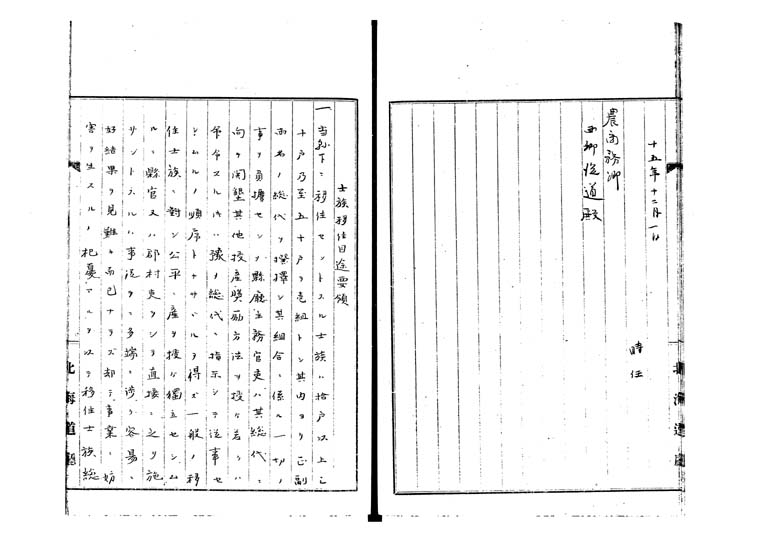 十五年十二月一日
時任
農商務卿
西郷従道殿
北海道廳
士族移住目途要領
一 当私下ニ移住セントスル士族ハ拾戸以上三
十戸乃至五十戸ヲ壱組トシ其内ヨリ正副
両名ノ総代ヲ撰擇シ其組合ニ係ル一切ノ
事ヲ負擔セシメ縣廳主務官吏ハ其総代ニ
向テ開墾其他授産奨励方法ヲ授ケ若シクハ
命令スル件ハ豫メ総代ニ指示シテ従事セ
シムルノ順序トナサヾルヲ得ズ一般ノ移
住士族ニ對シ公平ニ産ヲ授ケ獨立セシム
ルニ縣官又ハ郡村吏ヲシテ直接ニ之ヲ施
サントスルハ事従テ多端ニ渉リ容易ニ
好結果ヲ見難キ而已ナラズ却テ事業ニ妨
害ヲ生スルノ杞憂アルヲ以テ移住士族総
北海道廳